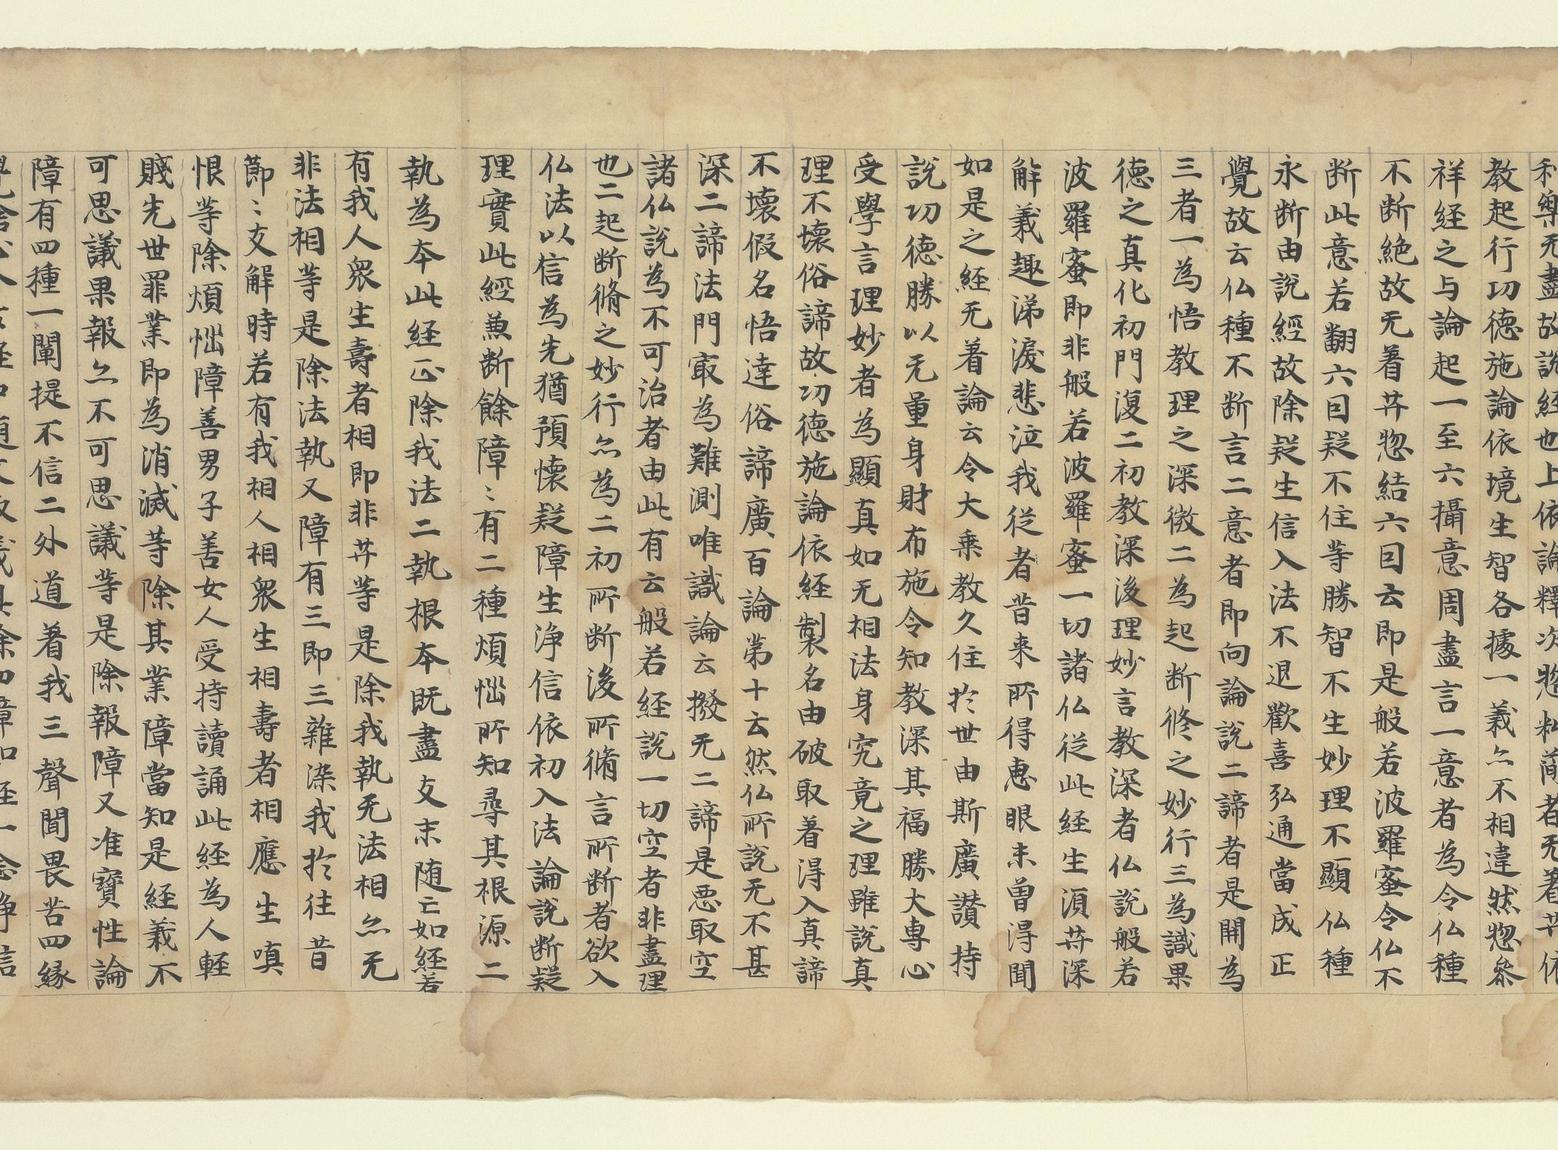 利樂无盡故說経也上依論釋次惣料蕳者无着䒑依
教起行功德施論依境生智各據一義亽不相違然惣叅
祥経之与論起一至六攝意周盡言一意者為令仏種
不断絶故无着䒑惣結六目云即是般若波羅蜜令仏不
断此意若翻六目疑不住等勝智不生妙理不顯仏種
永断由說經故除疑生信入法不退歡喜弘通當成正
覺故云仏種不断言二意者即向論說二諦者是開為
三者一為悟教理之深微二為起断修之妙行三為識果
德之真化初門復二初教深後理妙言教深者仏說般若
波羅蜜即非般若波羅蜜一切諸仏従此経生湏䒑深
解義趣涕淚悲泣我従昔来所得惠眼未曽得聞
如是之経无着論云令大乗教久住扵世由斯廣讃持
說功德勝以无量身財布施令知教深其福勝大専心
受學言理妙者為顯真如无相法身究竟之理雖說真
理不壊俗諦故功德施論依經製名由破取着得入真諦
不壊假名悟達俗諦廣百論第十云然仏所說无不甚
深二諦法門寂為難測唯識論云撥无二諦是悪取空
諸仏說為不可治者由此有云般若経說一切空者非盡理
也二起断脩之妙行亽為二初所断後所脩言所断者欲入
仏法以信為先猶預懐疑障生浄信依初入法論說断疑
理實此經兼断餘障〻有二種煩惱所知尋其根源二
執為夲此経正除我法二執根夲既盡支末随亡如経若
有我人衆生壽者相即非䒑等是除我執无法相亽无
非法相等是除法執又障有三即三雜染我扵往昔
節〻支解時若有我相人相衆生相壽者相應生嗔
恨等除煩惱障善男子善女人受持讀誦此経為人輕
賤先世罪業即為消滅等除其業障當知是経義不
可思議果報亽不可思議等是除報障又准寶性論
障有四種一闡提不信二外道着我三聲聞畏苦四緣